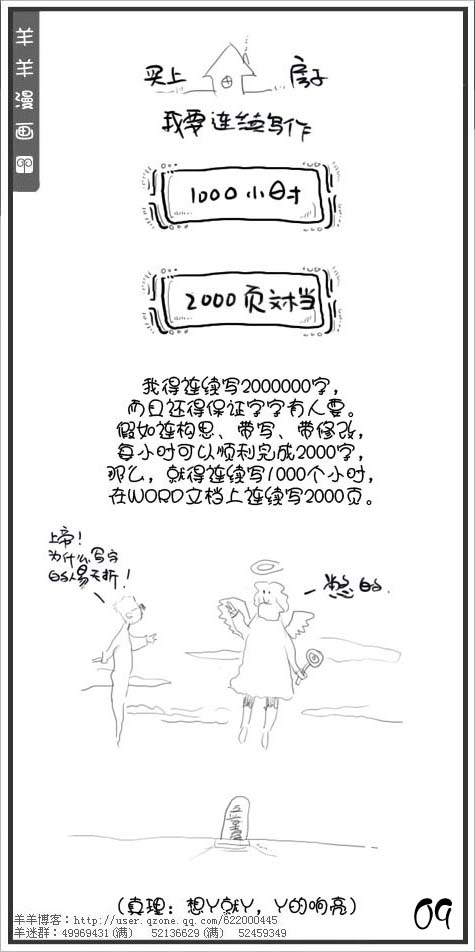 羊羊漫画
买上 房子
我要连续写作
1000小时
2000页文档
我得连续写2000000字,
而且还得保证字字有人要。
假如连构思、带写、带修改,
每小时可以顺利完成2000字,
那么,就得连续写1000个小时,
在WORD文档上连续写2000页。
上帝!
为什么写字
的易夭折!
憋的.
(真理:想Y就Y,Y的响亮)
09
羊羊博客:http://user.qzone.qq.com/622000445
羊迷群:49969431(满) 52136629(满) 52459349